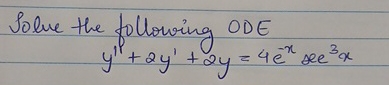 Solve the following ODE
y'' + 2y' + 2y = 4e^{-x} sec^3 x